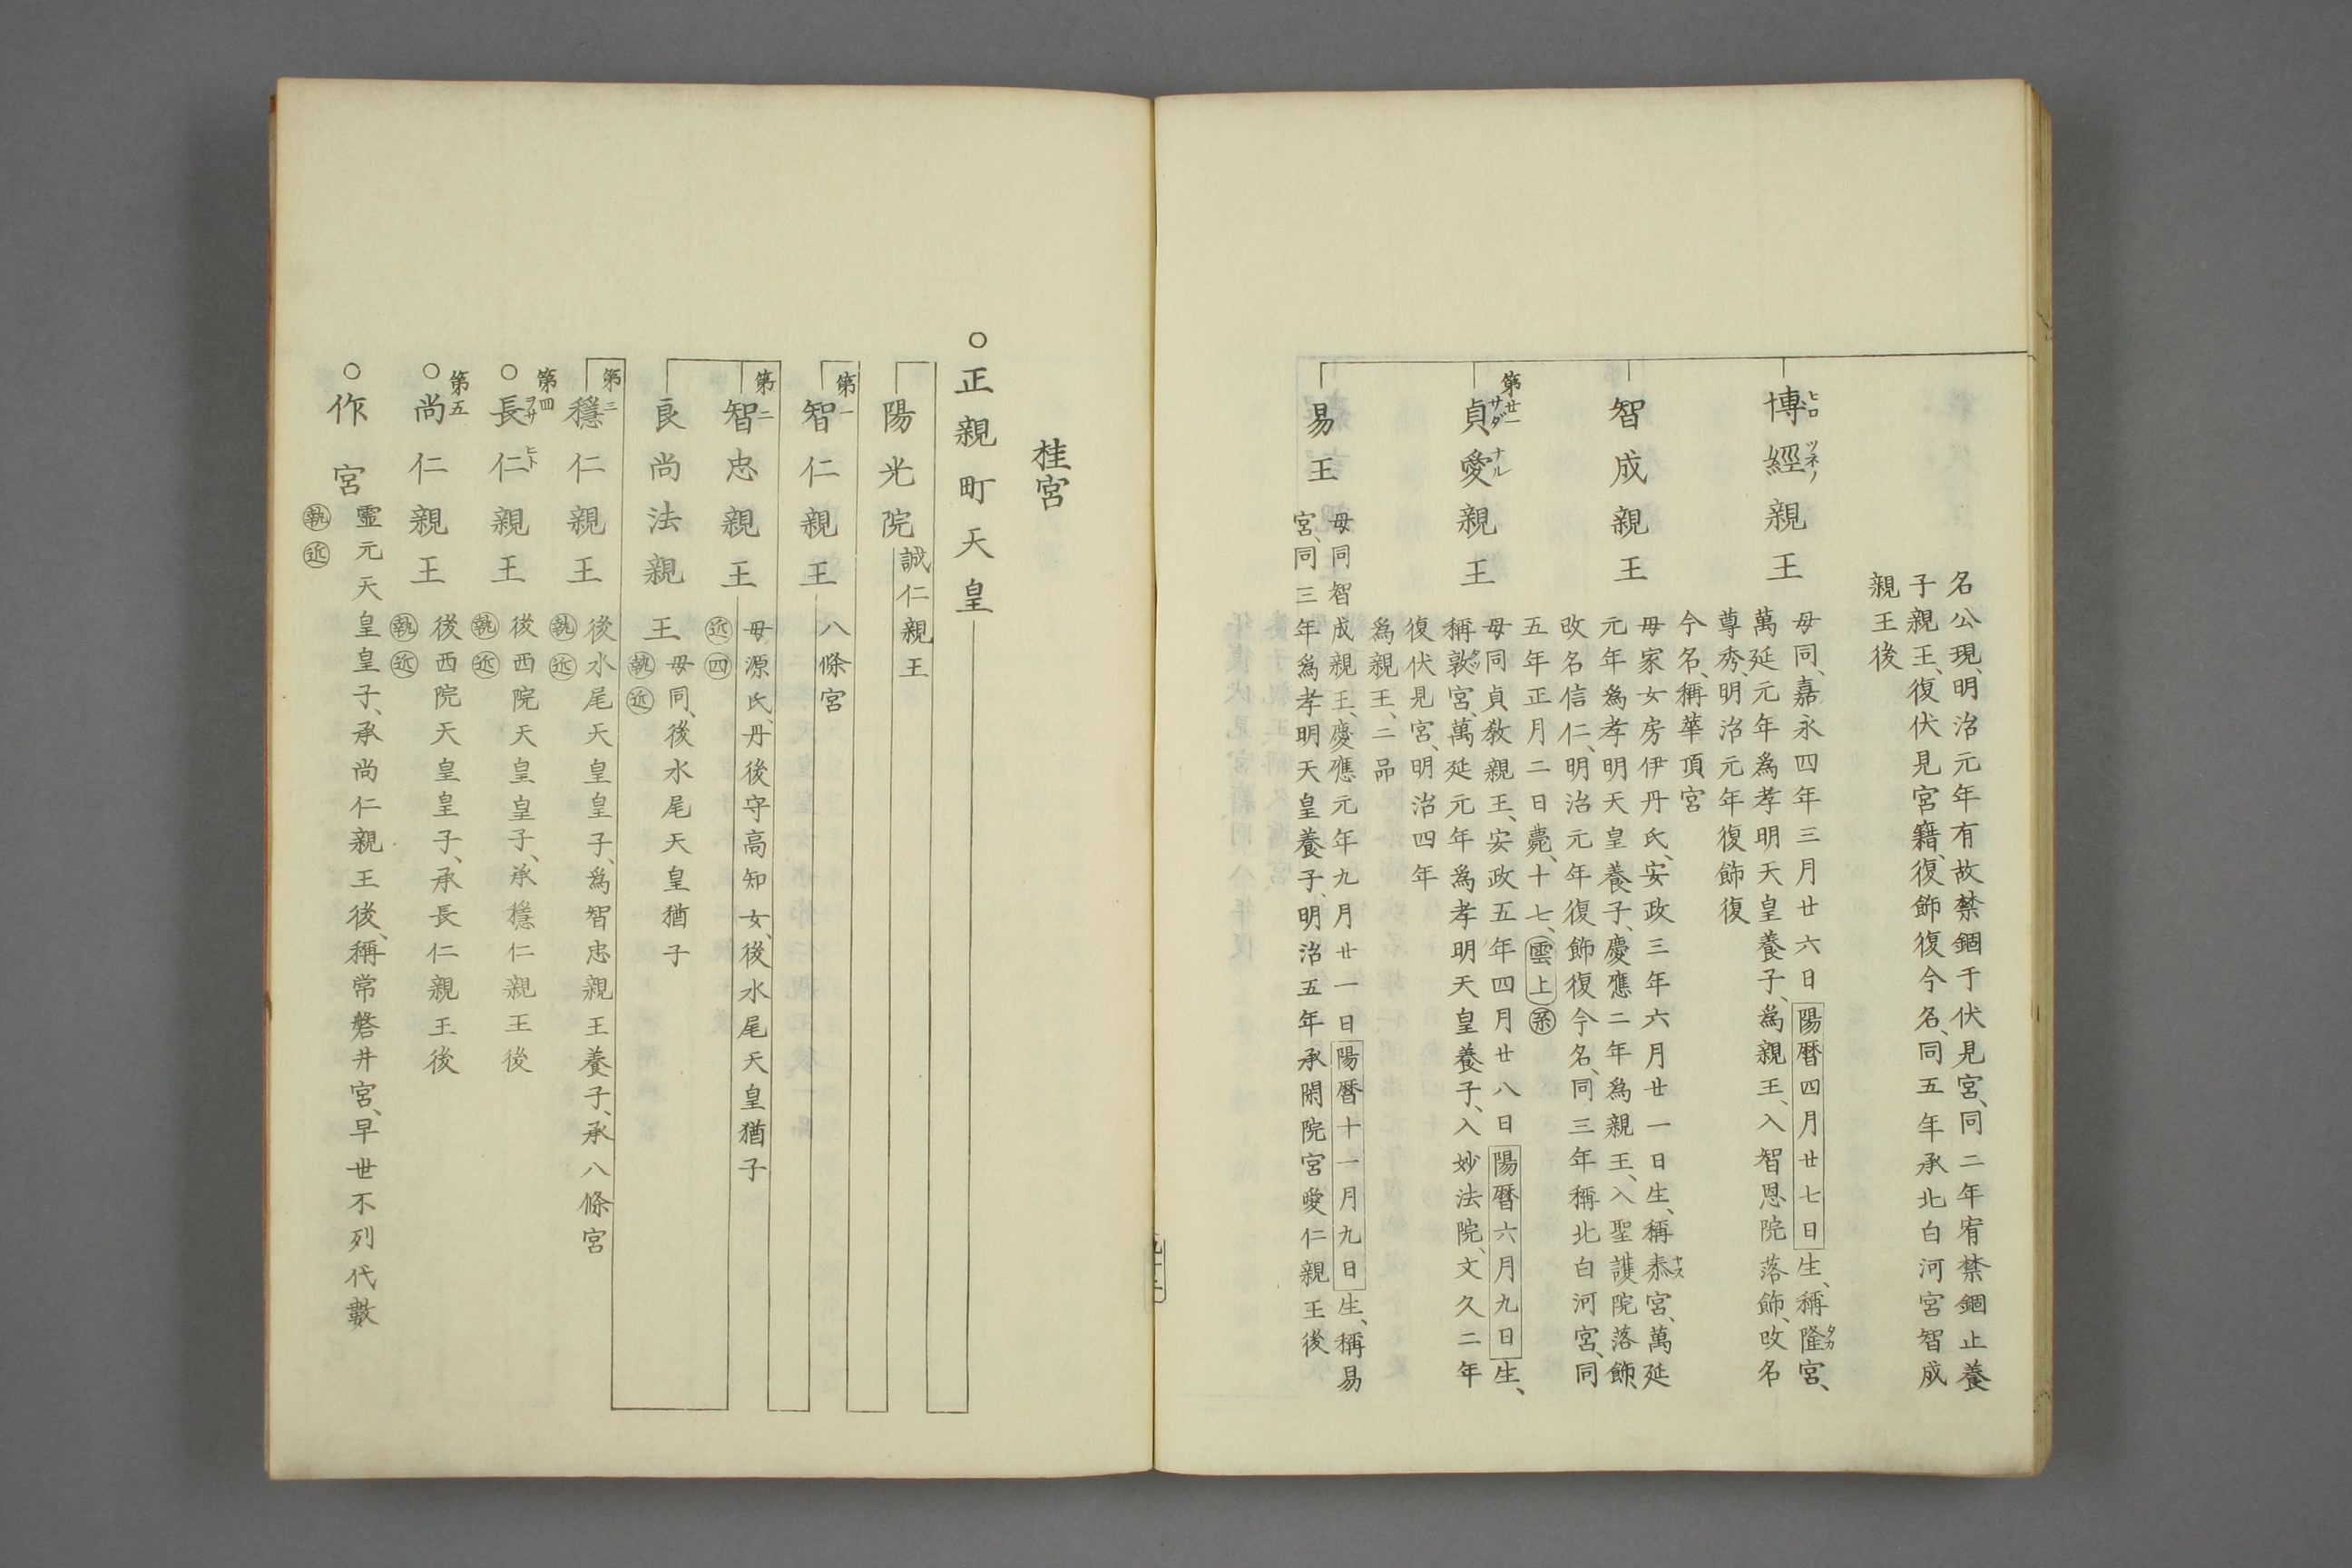 名公現、明治元年有故禁錮于伏見宮、同二年宥禁錮止養
子親王、復伏見宮籍、復飾復今名、同五年承北白河宮智成
親王後
博經親王
ヒロ ツネノ
母同、嘉永四年三月廿六日陽曆四月廿七日生、稱隆宮、
タカ
萬延元年爲孝明天皇養子、爲親王、入智恩院落飾、改名
尊秀、明治元年復飾復
今名、稱華頂宮
智成親王
母家女房伊丹氏、安政三年六月廿一日生、稱泰宮、萬延
ヤス
元年爲孝明天皇養子、慶應二年爲親王、入聖護院落飾、
改名信仁、明治元年復飾復今名、同三年稱北白河宮、同
五年正月二日薨、十七、雲上系
第廿一
貞愛親王
サダ ナル
母同貞敎親王、安政五年四月廿八日陽曆六月九日生、
稱敦宮、萬延元年爲孝明天皇養子、入妙法院、文久二年
復伏見宮、明治四年
爲親王、二品
易王
母同智成親王、慶應元年九月廿一日陽曆十一月九日生、稱易
宮、同三年爲孝明天皇養子、明治五年承閑院宮愛仁親王後
桂宮
○正親町天皇
陽光院
誠仁親王
第一
智仁親王
八條宮
第二
智忠親王
母源氏、丹後守高知女、後水尾天皇猶子
近四
良尚法親王
母同、後水尾天皇猶子
執近
第三
穩仁親王
後水尾天皇皇子、爲智忠親王養子、承八條宮
執近
第四
○長仁親王
ヲサ ヒト
後西院天皇皇子、承穩仁親王後
執近
第五
○尚仁親王
後西院天皇皇子、承長仁親王後
執近
○作宮
靈元天皇皇子、承尚仁親王後、稱常磐井宮、早世不列代數
執近